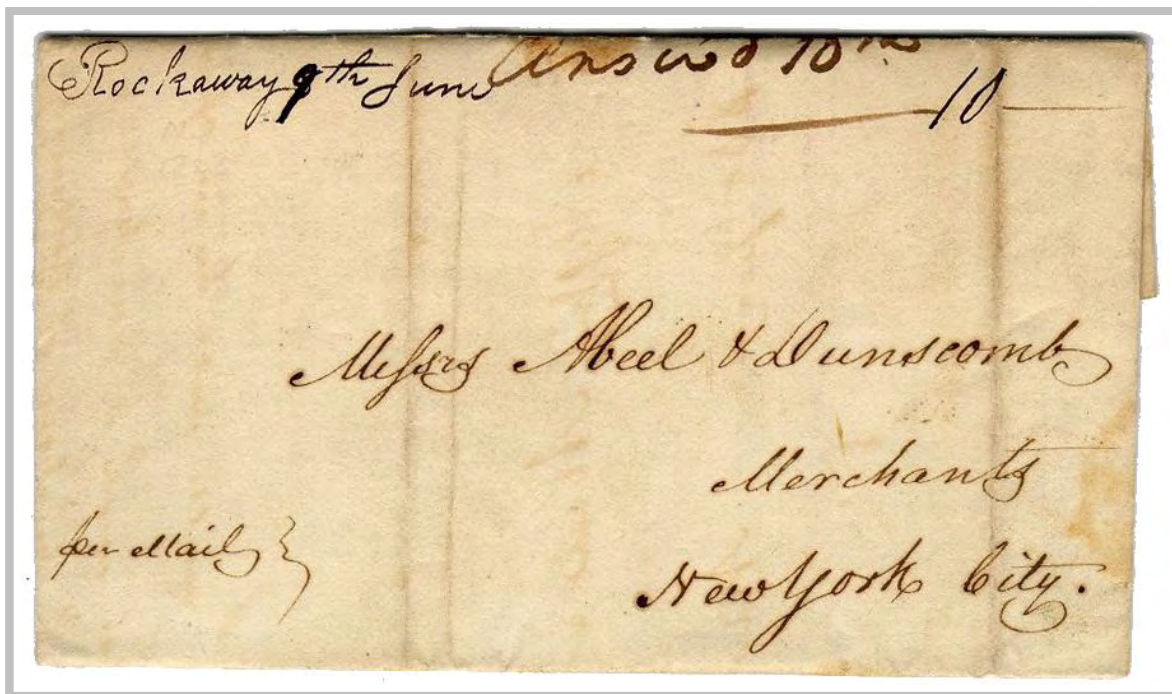 Rockaway 9th June
Answd 10th
10
Messrs Abeel & Dunscomb
Merchants
New York City.
per Mail